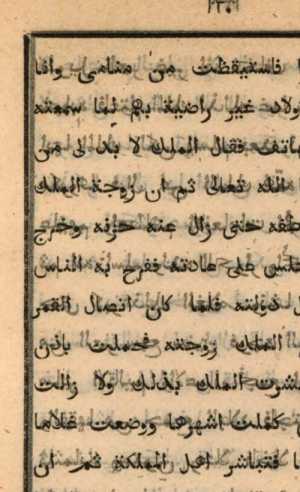 فاستيقظت من منامي وانا
ولاد غير راضية بهم لما سمعته
هاتف فقال الملك لا بد لي من
الله تعالى ثم ان زوجة الملك
حتى زال عنه حزنه وخرج
جلس على عادته ففرح به الناس
دولته فلما كان اتصال القمر
الملك زوجته فحملت باذن
بشرت الملك بذلك ولا زالت
كملت اشهرها ووضعت غلاما
فتباشر اهل المملكة ثم ان